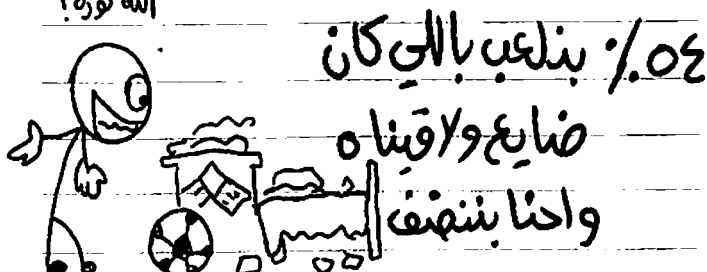 الله كورة!
٥٤٪ بنلعب باللي كان
ضايع ولاقيناه
واحنا بننضف